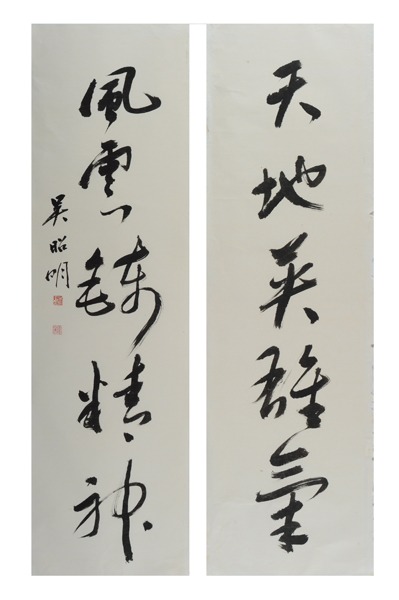 天地英雄氣
風雲鑄精神
吳昭明